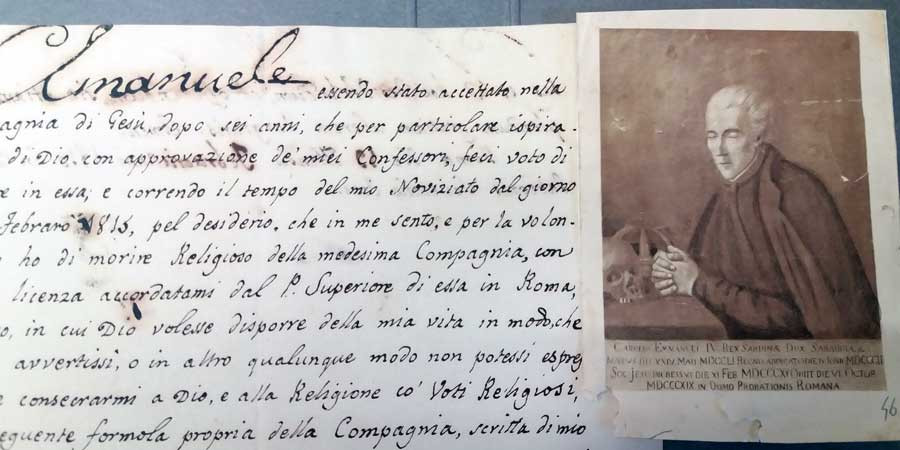 Emanuele essendo stato accettato nella
pagnia di Gesù, dopo sei anni, che per particolare ispira-
di Dio, con approvazione de' miei Confessori, feci voto di
e in essa; e correndo il tempo del mio Noviziato dal giorno
Febraro 1815, pel desiderio, che in me sento, e per la volon-
ho di morire Religioso della medesima Compagnia, con
licenza accordatami dal P. Superiore di essa in Roma,
o, in cui Dio volesse disporre della mia vita in modo, che
avvertissi, o in altro qualunque modo non potessi espreſ
e consecrarmi a Dio, e alla Religione co' Voti Religiosi,
eguente formola propria della Compagnia, scritta di mio
CAROLUS EMMANUEL IV REX SARDINIÆ DUX SABAUDIÆ &
NATUS DIE XXIV MAII MDCCLI REGNO ABDICAVIT DIE IV IUNII MDCCCII
SOC. JESU INGRESSUS DIE XI FEB. MDCCCXV OBIIT DIE VI OCTOB.
MDCCCXIX IN DOMO PROBATIONIS ROMANA
46